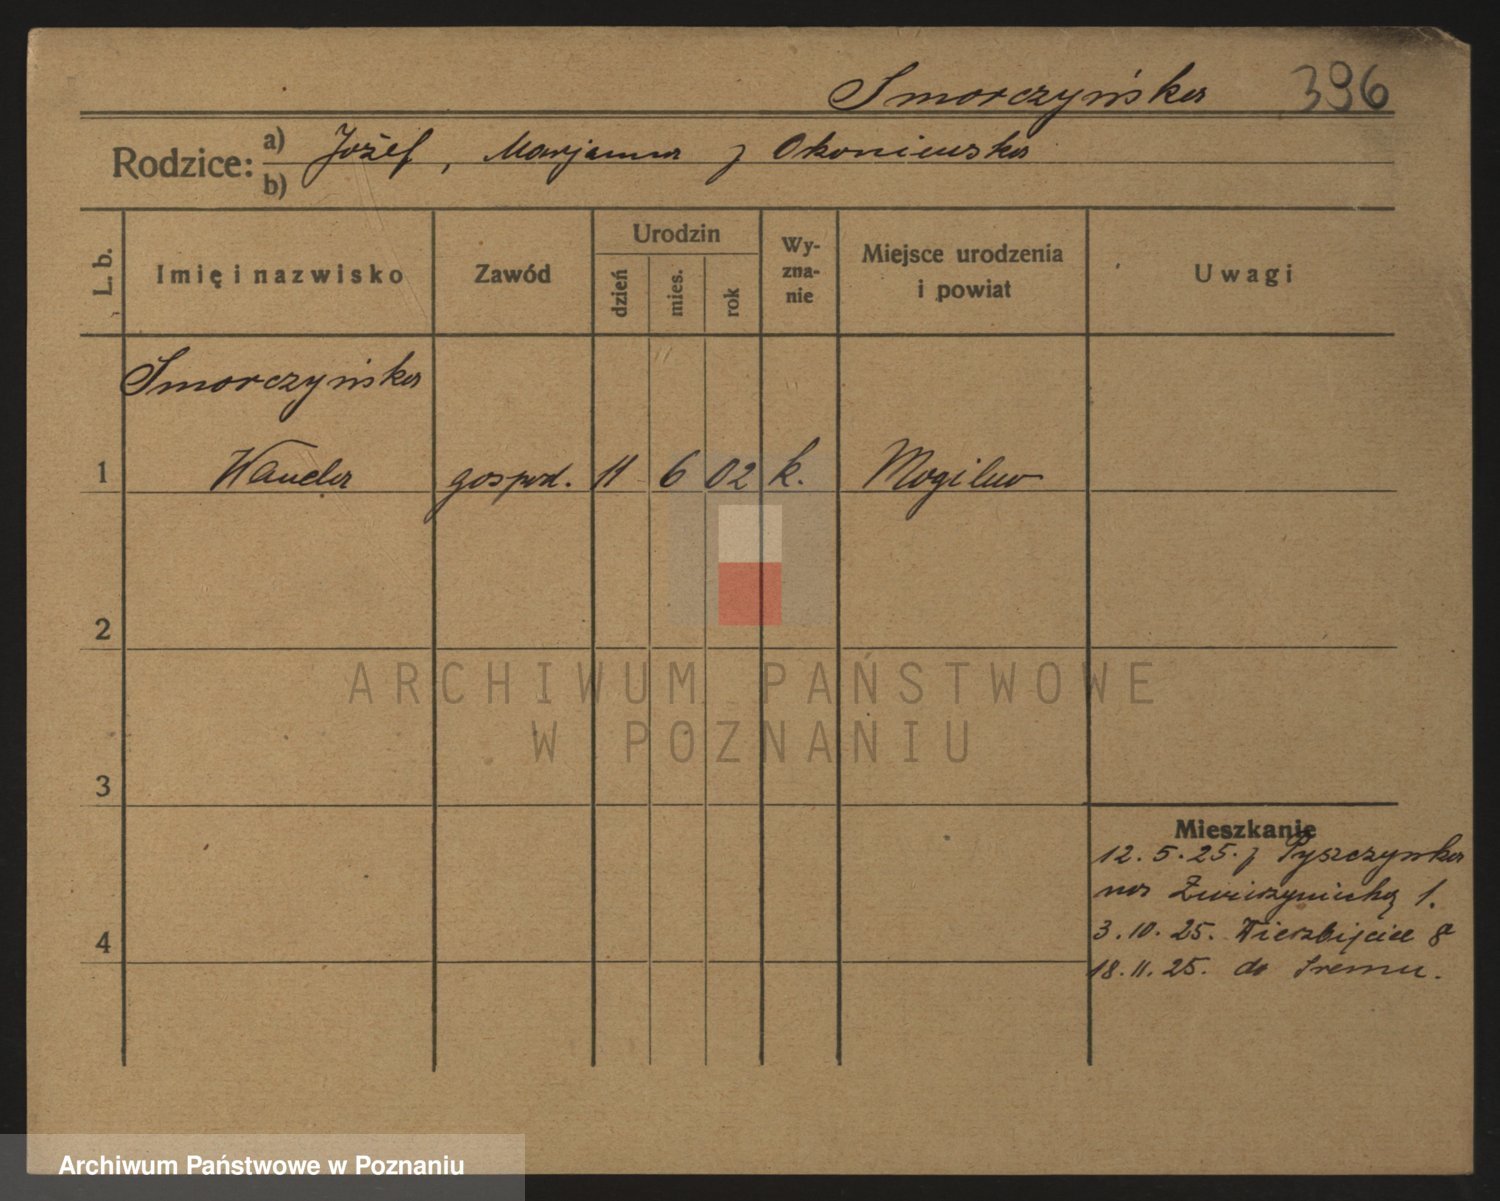 Smorczyńska 396
Rodzice: a) Józef, Marjanna z Okoniewska
b)
L. b. Imię i nazwisko Zawód Urodzin dzień mies. rok Wy-zna-nie Miejsce urodzenia i powiat Uwagi
Smorczyńska
1 Wanda gospod. 11 6 02 k. Mogilno
2
ARCHIWUM PAŃSTWOWE
W POZNANIU
3
Mieszkanie
12.5.25. z Pyszczynka
na Zwierzyniecką 1.
3.10.25. Wierzbięcice 8
4
18.11.25. do Śremu.
Archiwum Państwowe w Poznaniu